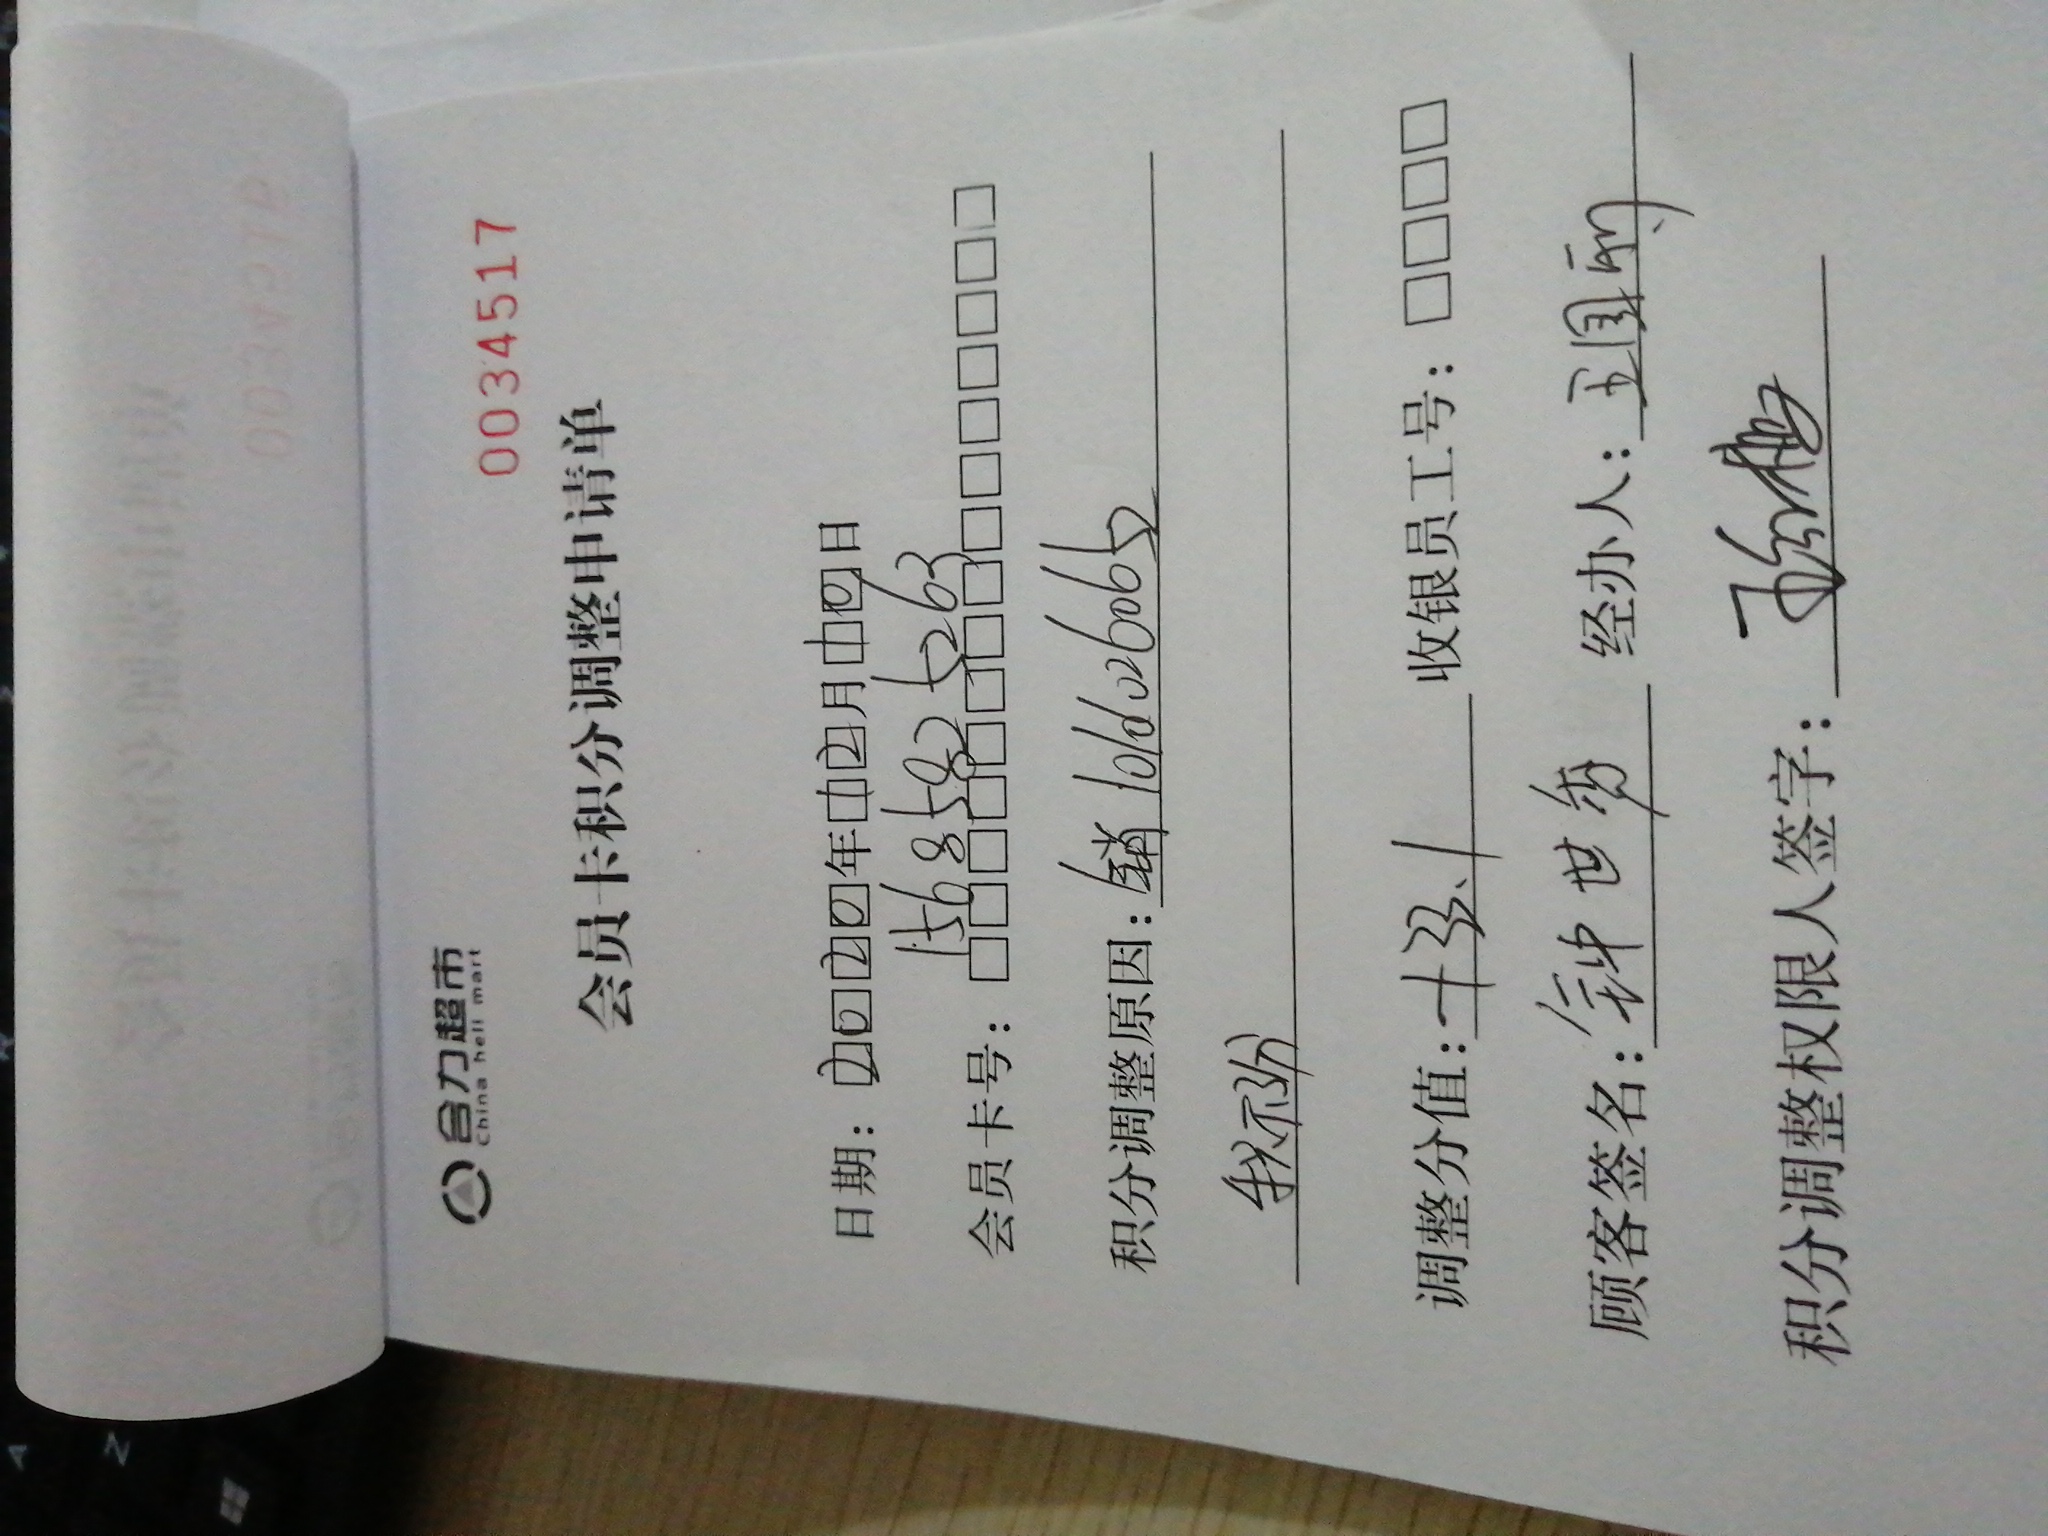 合力超市
China heli mart
0034517
会员卡积分调整申请单
日期：2020年12月10日
会员卡号：15685825263
积分调整原因：
调整分值：+33.1 收银员工号：
顾客签名：钟世秀 经办人：王国丽
积分调整权限人签字：